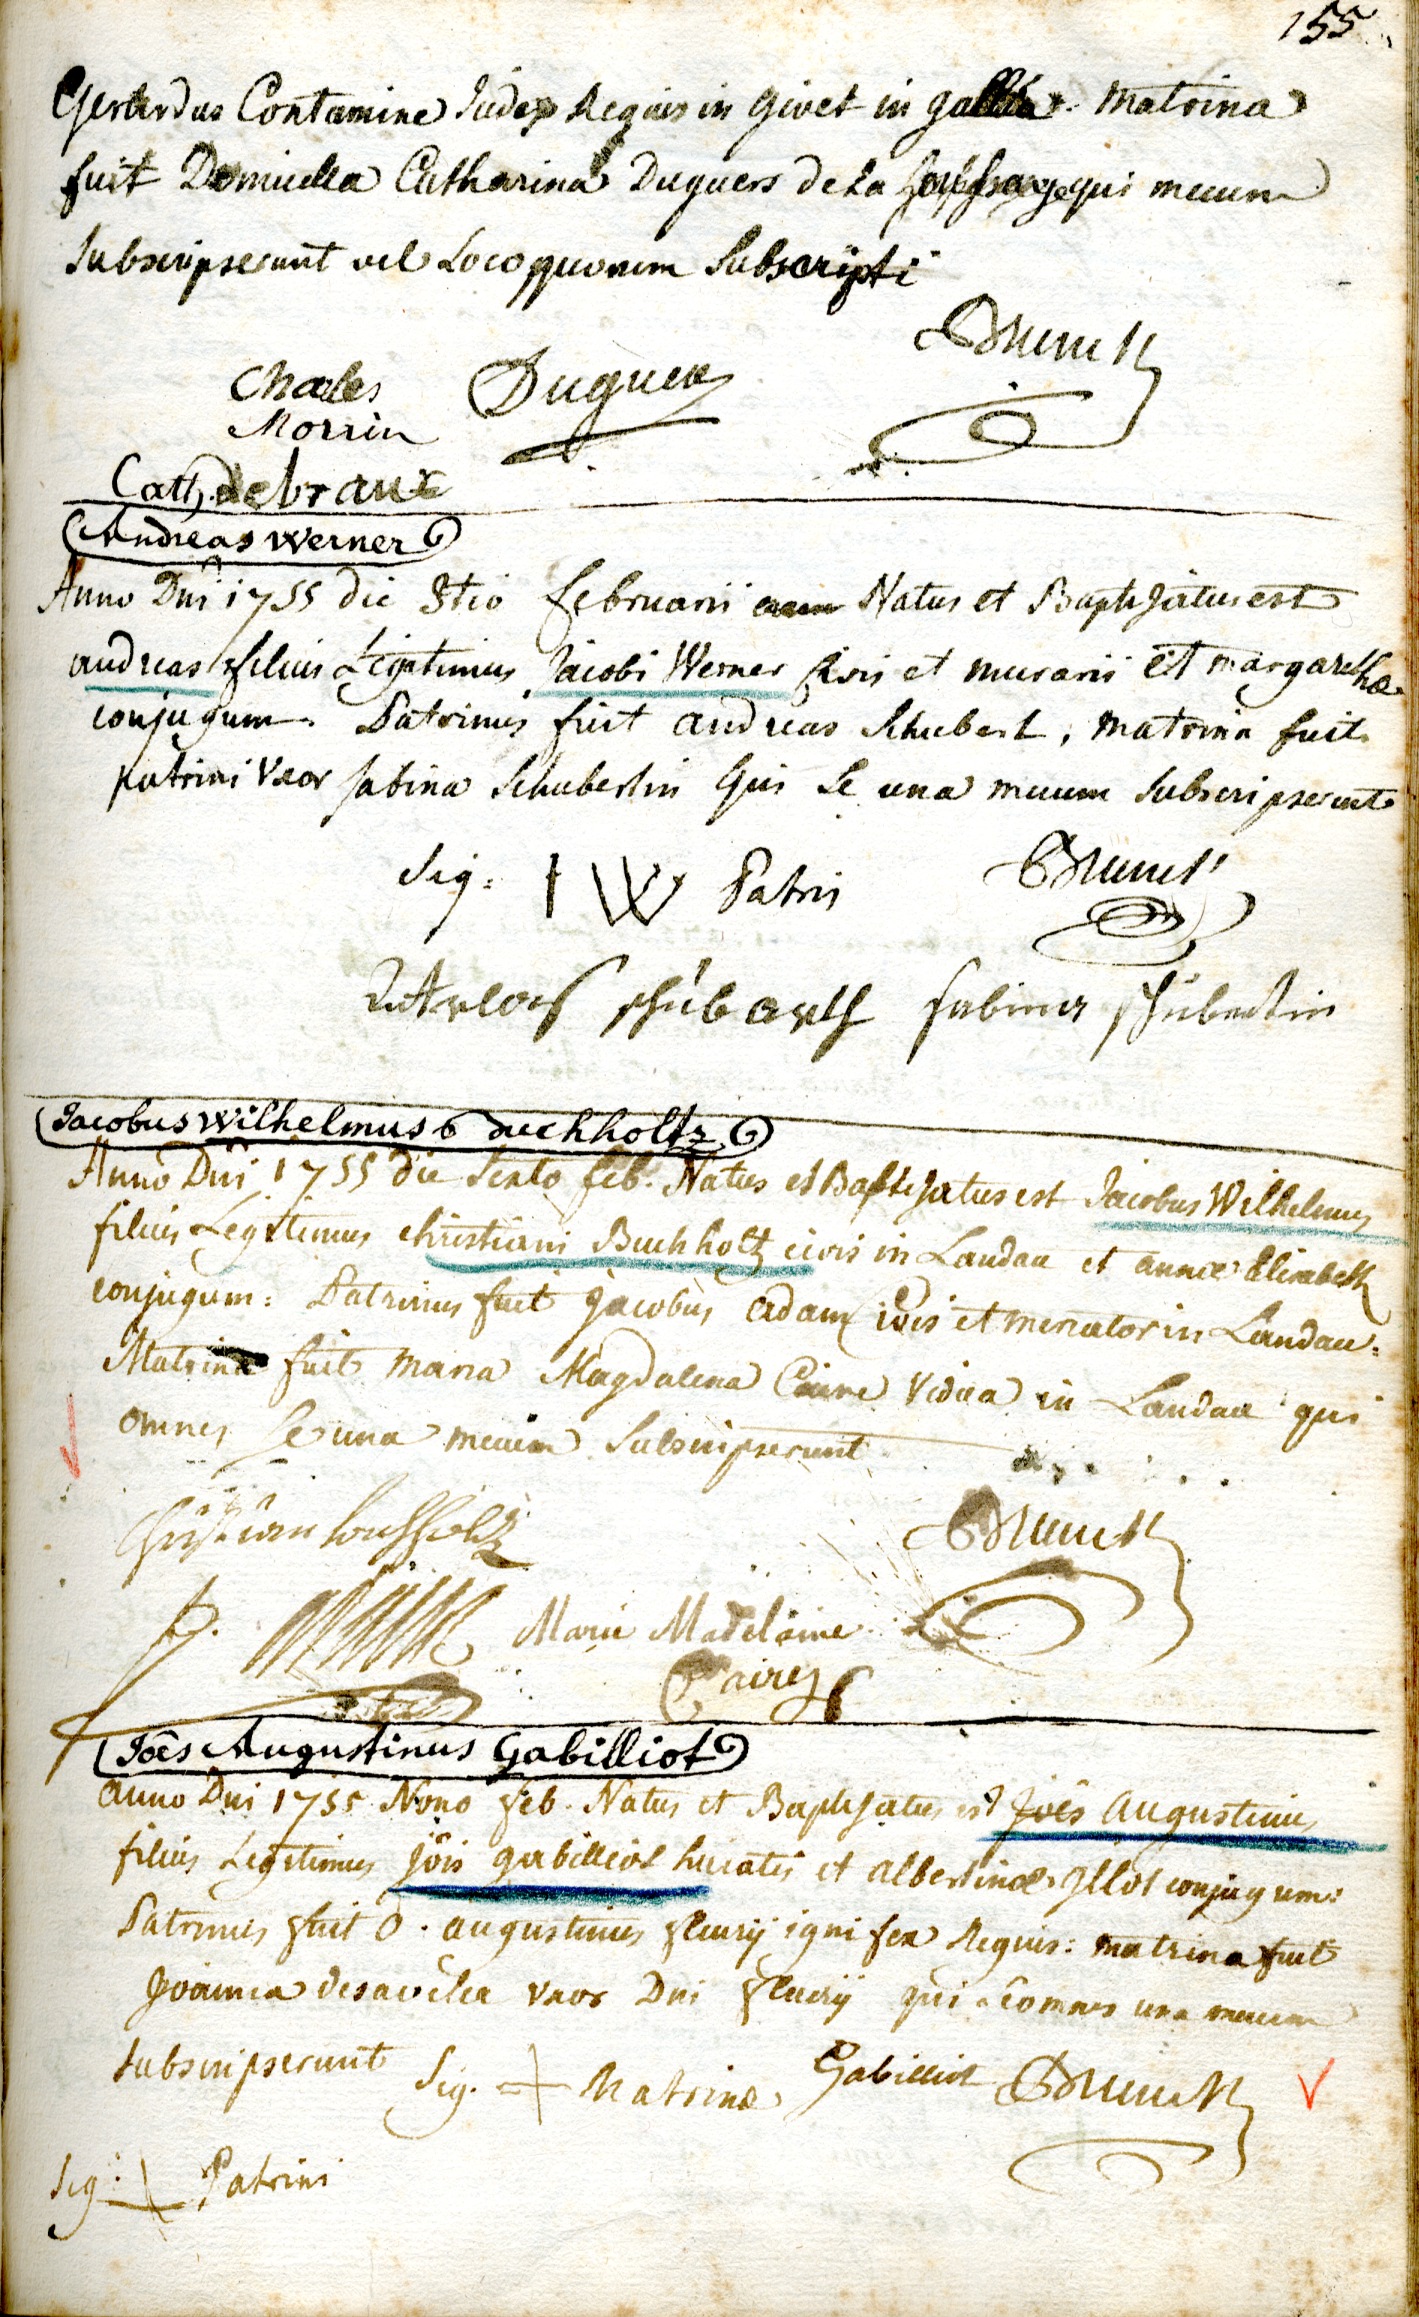 155
Gerardus Contamine Judex Regius in Givet in gallia. Matrina
fuit Domicella Catharina Duguers de La qui mecum
Subscripserunt vel Loco quorum Subscripti
Brunck
Charles Duguers
Morrin
Cath. debraux
Andreas Werner
Anno Dni 1755 die 3tio februarii Natus et Baptizatus est
andreas filius Legitimus Jacobi Werner civis et murarii et margarethae
conjugum. Patrinus fuit andreas Schubert, matrina fuit
patrini Uxor Sabina Schubertin Qui Se una mecum Subscripserunt
Sig: I W Patris Brunck
Schübarth Sabina Schübertin
Jacobus Wilhelmus Buchholtz
Anno Dni 1755 die Sexto feb. Natus et Baptizatus est Jacobus Wilhelmus
filius Legitimus christiani Buchholtz civis in Landau et annae Elisabeth
conjugum: Patrinus fuit Jacobus adam civis et mercator in Landau:
Matrina fuit maria Magdalena Caire Vidua in Landau qui
omnes Se una mecum Subscripserunt
Christian buchholtz Brunck
Marie Madelaine
Caires
Joês Augustinus Gabilliot
anno Dni 1755 Nono feb. Natus et Baptizatus est Joês Augustinus
filius Legitimus Jôis gabilliot et albertinae Illot conjugum:
Patrinus fuit D. augustinus fleurÿ ignifex Regius: matrina fuit
Joanna uxor Dni fleurÿ qui omnes una mecum
Subscripserunt Sig. + Matrinae Gabilliot Brunck
Sig: + Patrini